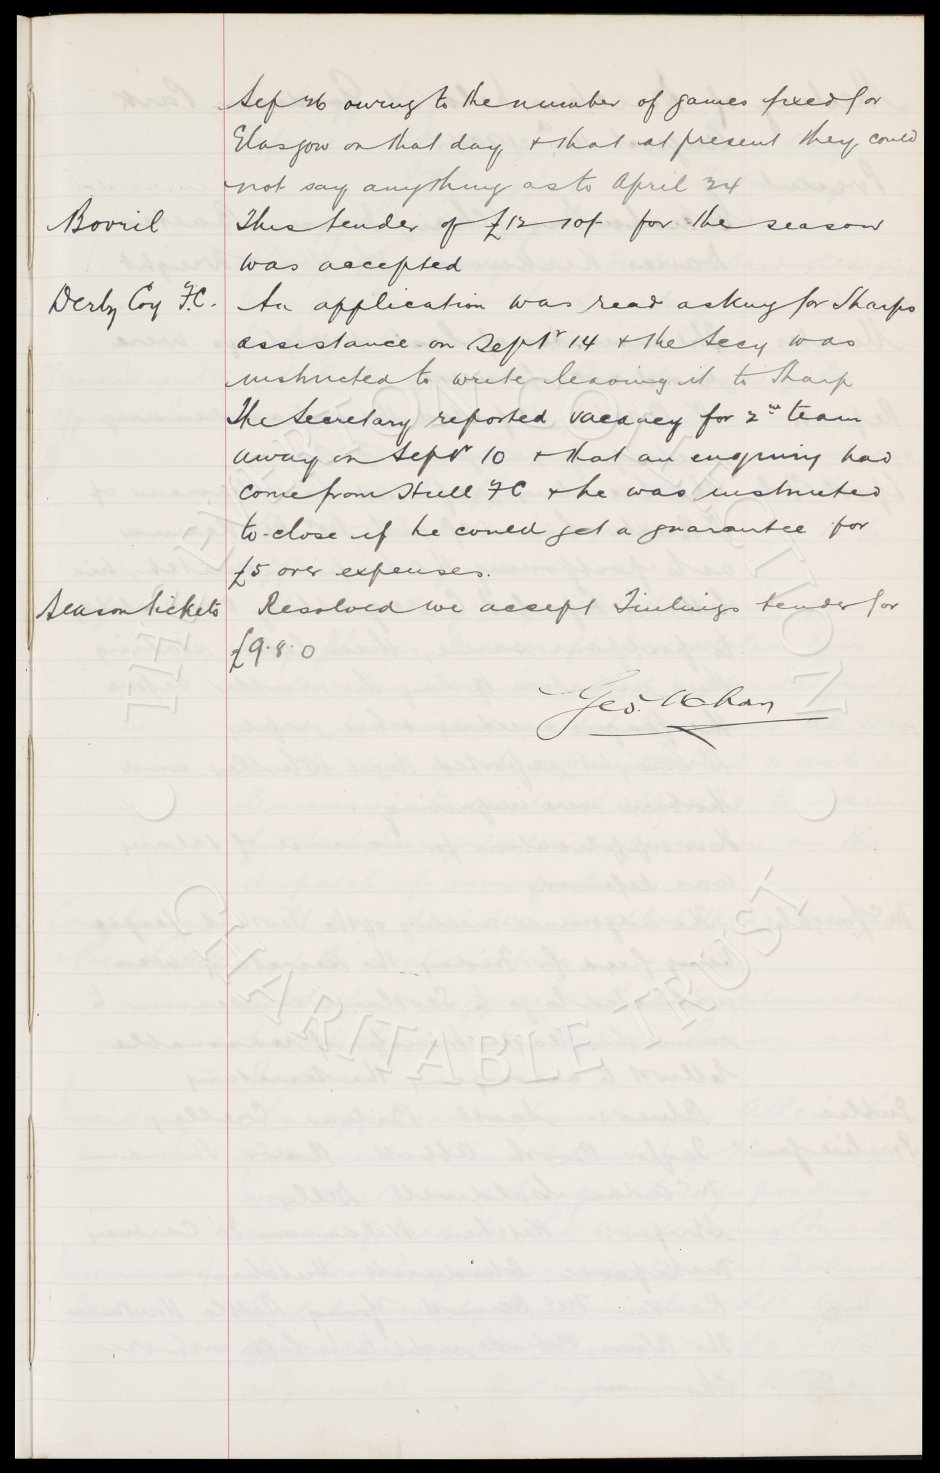 Sep 26 owing to the number of games fixed for
Glasgow on that day & that at present they could
not say anything as to April 24
Bovril This tender of £12 10/- for the season
was accepted
Derby Coy F.C. An application was read asking for Sharps
assistance on Septr 14 & the Secy was
instructed to write leaving it to Sharp
The Secretary reported vacancy for 2nd team
away on Septr 10 & that an enquiry had
come from Hull FC & he was instructed
to close if he could get a guarantee for
£5 over expenses.
Season tickets Resolved we accept Tinlings tender for
£9.8.0
Geo. Mahon
THE EVERTON COLLECTION
CHARITABLE TRUST